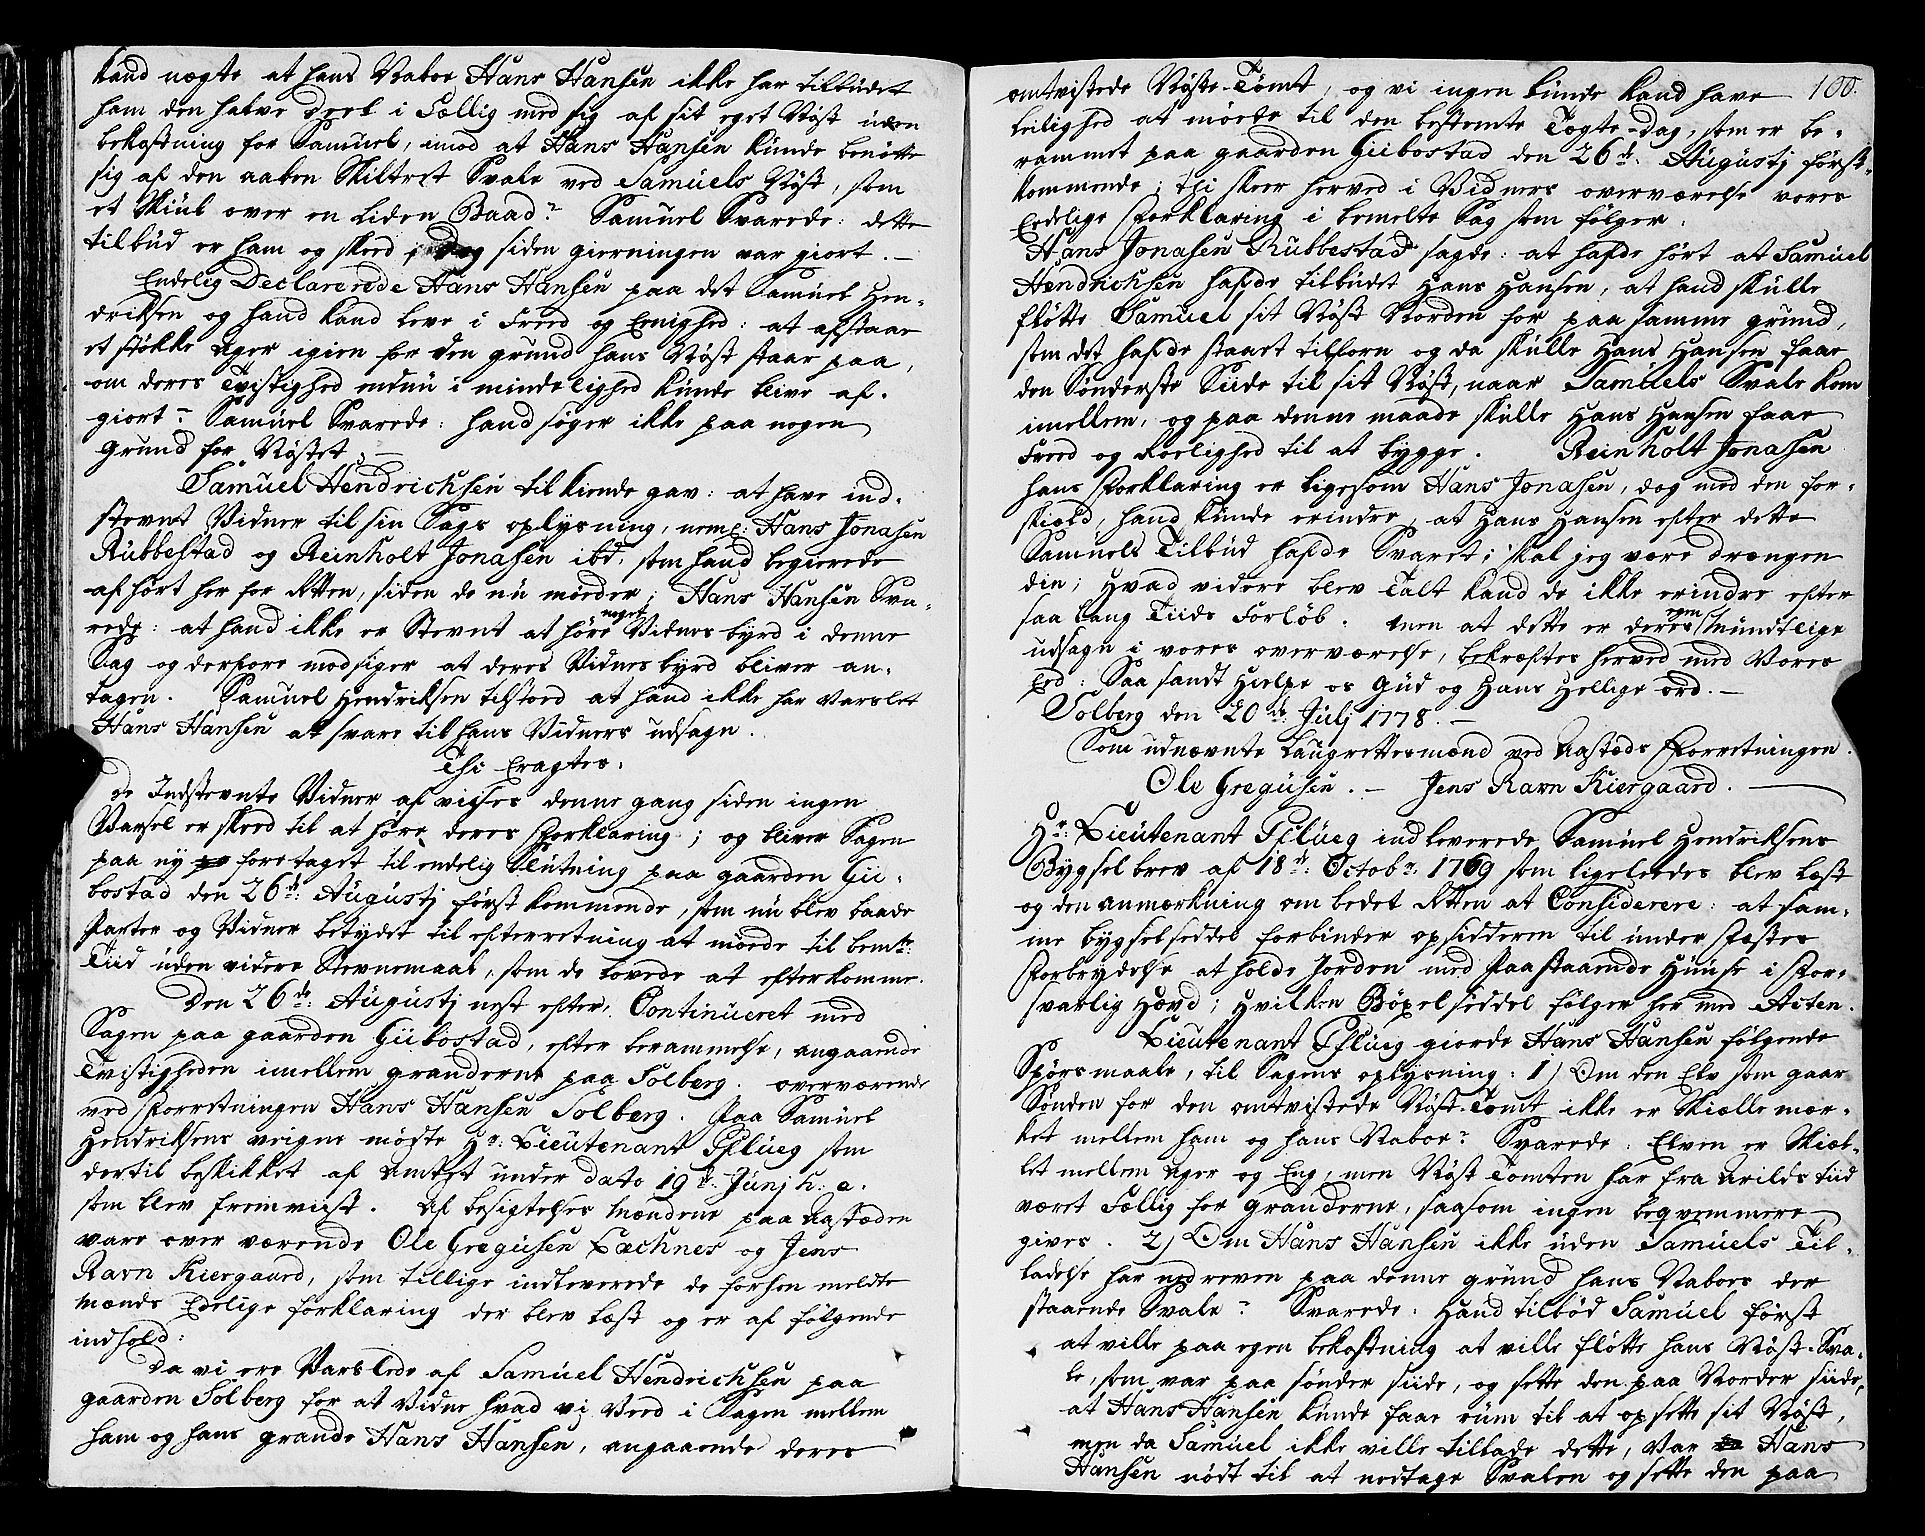 kand nægte at hans Naboe Hans Hansen ikke har tilbudet
ham den halve deel i Fællig med sig af sit eget Nøst uden
bekostning for Samuel, imod at Hans Hansen kunde benøtte
sig af den aaben skiltret Svale ved Samuels Nøst, som
et skiul over en liden Baad? Samuel Svarede: dette
tilbud er ham og skeed i Dag siden gierningen var giort. —
Endelig Declarerede Hans Hansen paa det Samuel Hen-
driksen og hand kand leve i Freed og Eenighed: at afstaae
et støkke ager igien for den grund hans Nøst staar paa,
om deres Tvistighed endnu i mindelighed kunde blive af-
giort? Samuel Svarede: hand søger ikke paa nogen
grund for Nøstet. —
Samuel Hendrichsen tilkiende gav: at have ind-
stevnt Vidner til sin Sags oplysning, neml: Hans Jonasen
Rubbestad og Reinholt Jonasen ibd. som hand begierede
afhørt her for Retten, siden de nu møeder; Hans Hansen Sva-
rede: at hand ikke er Stevnt at høre noget Vidnesbyrd i denne
Sag og derfore modsiger at deres Vidnesbyrd bliver an-
tagen. Samuel Hendriksen tilstoed at hand ikke har Varslet
Hans Hansen at svare til hans Vidners udsagn.
Thi Eragtes:
De Indstevnte Vidner afvises denne gang siden ingen
Varsel er skeed til at høre deres Forklaring; og bliver Sagen
paa ny foretaget til endelig Slutning paa gaarden Gii-
bostad den 26de Augustj først kommende, som nu blev baade
Parter og Vidner betydet til efterretning at møede til bemte
Tiid uden videre Stevnemaal, som de lovede at efterkomme.
Den 26de Augustj nest efter, Continueret med
Sagen paa gaarden Giibostad, efter berammelse, angaaende
Tvistigheden imellem granderne paa Solberg. overværende
ved Forretningen Hans Hansen Solberg. Paa Samuel
Hendriksens veigne mødte Hr. Lieutenant Pflueg som
dertil beskikket af Amtet under dato 19de Junj h: a.
som blev fremviist. Af besigtelses Mændene paa Aastæden
vare overværende Ole Gregusen Laechnes og Jens
Ravn Kiergaard, som tillige indleverede de forhen meldte
Mænds Edelige forklaring der blev læst og er af følgende
indhold:
Da vi ere Varslede af Samuel Hendrichsen paa
gaarden Solberg for at Vidne hvad vi Veed i Sagen mellem
ham og hans grande Hans Hansen, angaaende deres
100.
omtvistede Nøste-Tomt, og vi ingenlunde kand have
leilighed at møede til den bestemte Tægte-dag, som er be-
rammet paa gaarden Giibostad den 26de Augustj først-
kommende; thi skeer herved i Vidners overværelse vores
Eedelige Forklaring i bemelte Sag som følger:
Hans Jonasen Rubbestad sagde: at hafde hørt at Samuel
Hendrichsen hafde tilbudet Hans Hansen, at hand skulle
fløtte Samuel sit Nøst Norden for paa samme grund,
som det hafde staaet tilforn og da skulle Hans Hansen faae
den Sønderste Siide til sit Nøst, naar Samuels Svale kom
imellem, og paa denne maade skulle Hans Hansen faae
Freed og Roelighed til at bygge. Reinholt Jonasen
hans Forklaring er ligesom Hans Jonasen, dog med den for-
skield, hand kunde erindre, at Hans Hansen efter dette
Samuels Tilbud hafde Svaret: skal jeg være drængen
din; Hvad videre blev talt kand de ikke erindre efter
saa lang Tiids Forløb. Men at dette er deres egen Mundtlige
udsagn i vores overværelse, bekræftes herved med Vores
Eed: Saa sandt Hielpe os Gud og Hans Hellige ord. —
Solberg den 20de Julj 1778. —
Som udnævnte Laugrettesmænd ved Aasteds Forretningen.
Ole Gregusen. — Jens Ravn Kiergaard. —
Hr: Lieutenant Pflueg indleverede Samuel Hendriksens
Bygselbrev af 18de Octobr. 1769 som ligeleedes blev læst
og den anmærkning ombedet Retten at Considerere: at sam-
me bygselseddel forbinder opsidderen til under fæstes
Forbrydelse at holde Jorden med Paastaaende Huuse i For-
svarlig Hævd; Hvilken Bøxelseddel følger her med Acten.
Lieutenant Pflueg giorde Hans Hansen følgende
Spørsmaale, til Sagens oplysning: 1) Om den Elv som gaar
Sønden for den omtvistede Nøst-Tomt ikke er Skiællemær-
ket mellem ham og hans Naboe? Svarede: Elven er Skiæl-
let mellem ager og Eng, men Nøst Tomten har fra Arilds tiid
været Fællig for Granderne, saasom ingen beqvemmere
gives. 2) Om Hans Hansen ikke uden Samuels Til-
ladelse har nedreven paa denne grund hans Naboes der
staaende Svale? Svarede: Hand tilbød Samuel først
at ville paa egen bekostning at ville fløtte hans Nøst-Sva-
le, som var paa sønder siide, og sette den paa Norder siide,
at Hans Hansen kunde faae rum til at opsette sit Nøst,
men da Samuel ikke ville tillade dette, Var Hans
Hansen nødt til at nedtage Svalen og sette den paa